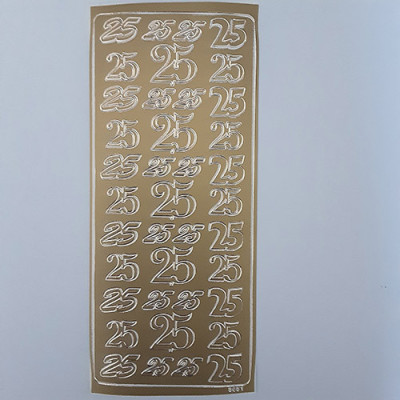 25 25 25 25
25 25 25
25 25 25 25
25 25 25
25 25 25 25
25 25 25
25 25 25 25
25 25 25
25 25 25 25
25 25 25
25 25 25 25